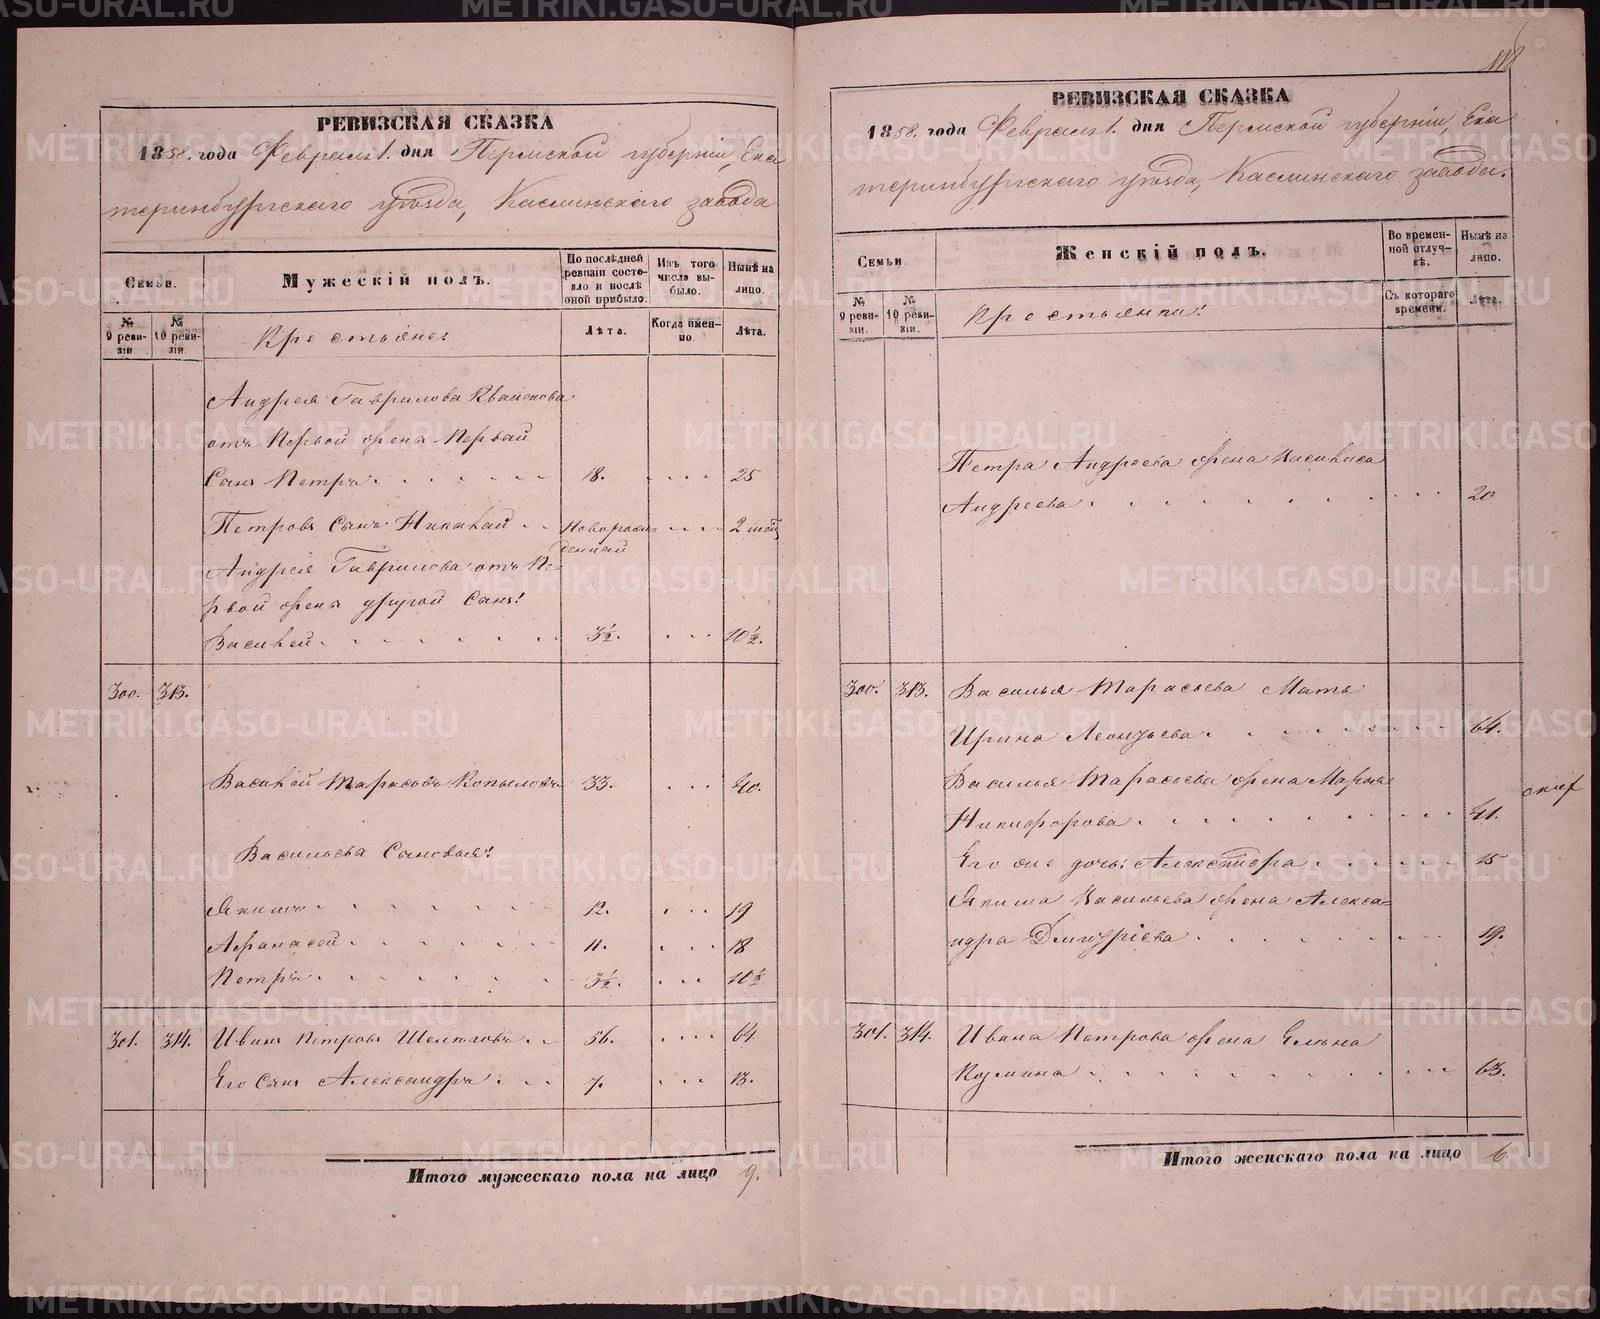 РЕВИЗСКАЯ СКАЗКА
1858. года Февраля 1. дня Пермской губерніи, Ека
теринбургскаго уѣзда, Каслинскаго завода
Семьи.
Мужескій полъ.
По послѣдней ревизіи состояло и послѣ оной прибыло.
Изъ того числа выбыло.
Нынѣ на лицо.
№ 9 ревизіи
№ 10 ревизіи
Крестьяне:
Лѣта.
Когда именно.
Лѣта.
Андрея Гаврилова
отъ Первой жены Первый
Сынъ Петръ 18. 25
Петровъ Сынъ Николай Новорожденный 2
Андрея Гаврилова отъ Пе-
рвой жены другой Сынъ:
Василей 3½. 10½.
300. 313.
Василей Тарасовъ Копыловъ 33. 40.
Васильева Сыновья:
Якимъ 12. 19
Афанасей 11. 18
Петръ 3½. 10½
301. 314. Иванъ Петровъ Шелюговъ 56. 64
Его Сынъ Александръ 7. 13.
Итого мужескаго пола на лицо 9.
РЕВИЗСКАЯ СКАЗКА
1858. года Февраля 1. дня Пермской губерніи, Ека
теринбургскаго уѣзда, Каслинскаго завода.
Семьи.
Женскій полъ.
Во временной отлучкѣ.
Нынѣ на лицо.
№ 9 ревизіи.
№ 10 ревизіи.
Крестьянки:
Съ котораго времени.
Лѣта.
Петра Андреева жена Василиса
Андреева 20
300. 313. Василья Тарасьева Мать
Ирина Леонтьева 64.
Василья Тарасьева жена Марья
Никифорова 41.
Его же дочь: Александра 15
Якима Васильева жена Алекса=
ндра Дмитріева 19.
301. 314. Ивана Петрова жена Елена
Козмина 63.
Итого женскаго пола на лицо 6.
METRIKI.GASO-URAL.RU